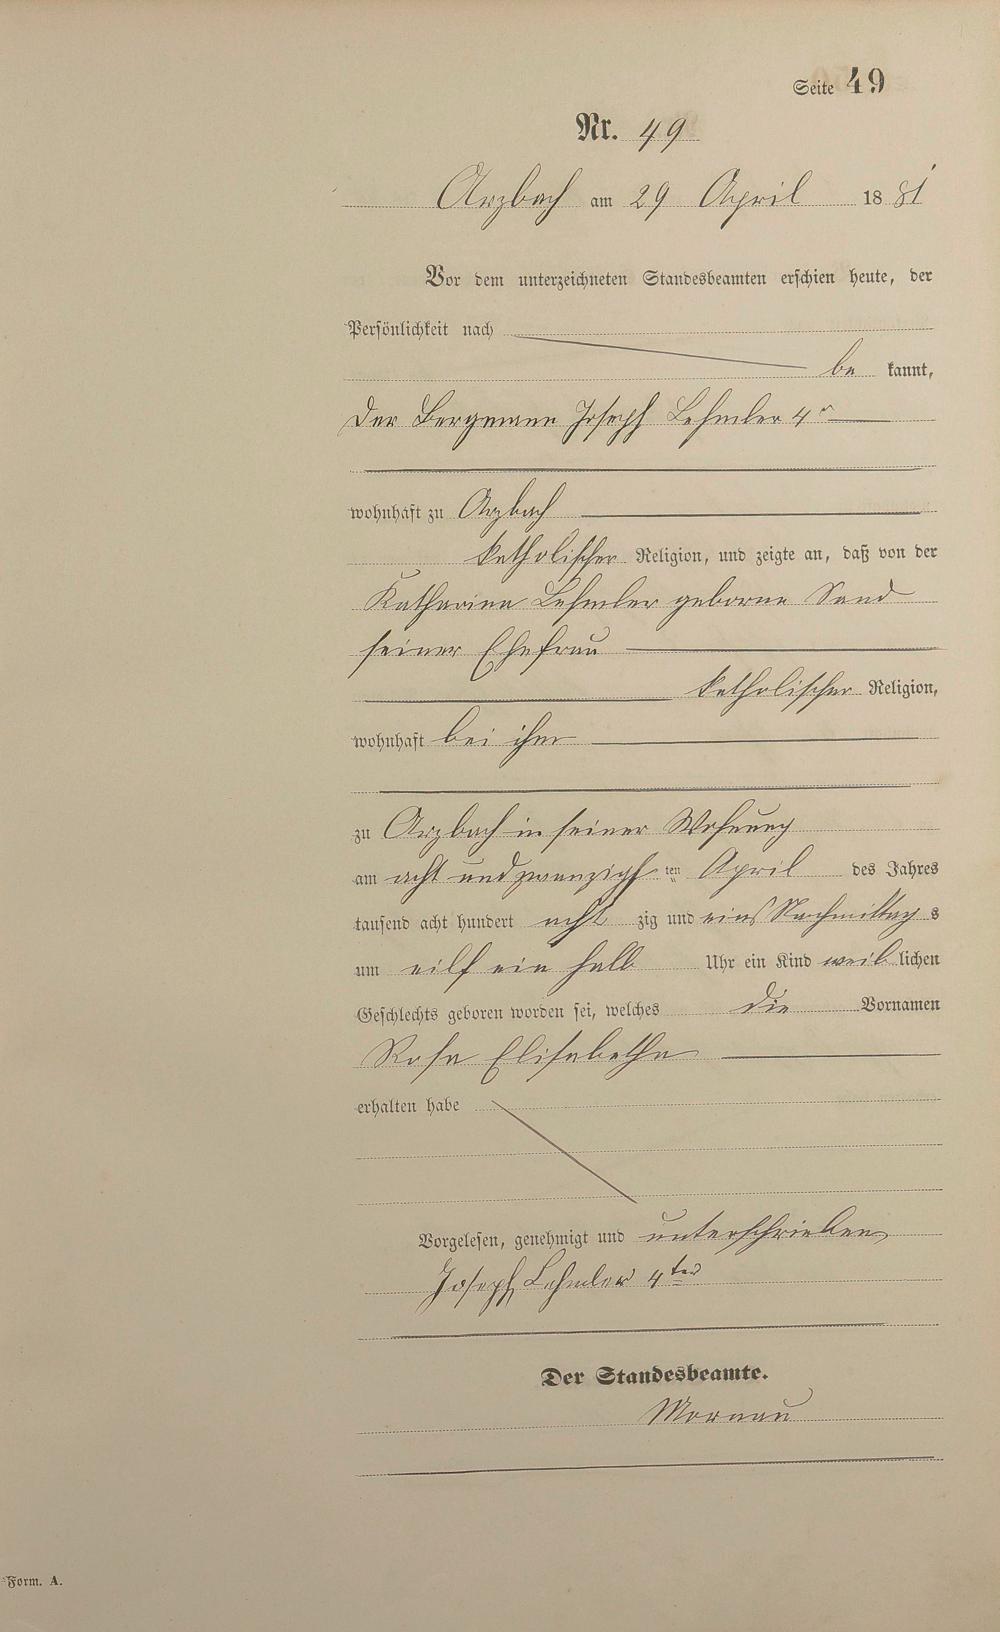 Seite 49
Nr. 49
Arzbach am 29 April 1881
Vor dem unterzeichneten Standesbeamten erschien heute, der
Persönlichkeit nach
be kannt,
der Bergmann Joseph Lehmler 4r
wohnhaft zu Arzbach
katholischer Religion, und zeigte an, daß von der
Katharina Lehmler geborne Sand
seiner Ehefrau
katholischer Religion,
wohnhaft bei ihm
zu Arzbach in seiner Wohnung
am acht und zwanzigsten April des Jahres
tausend acht hundert acht zig und eins Nachmittag s
um eilf ein halb Uhr ein Kind weib lichen
Geschlechts geboren worden sei, welches die Vornamen
Rosa Elisabetha
erhalten habe
Vorgelesen, genehmigt und unterschrieben
Joseph Lehmler 4ter
Der Standesbeamte.
Form. A.